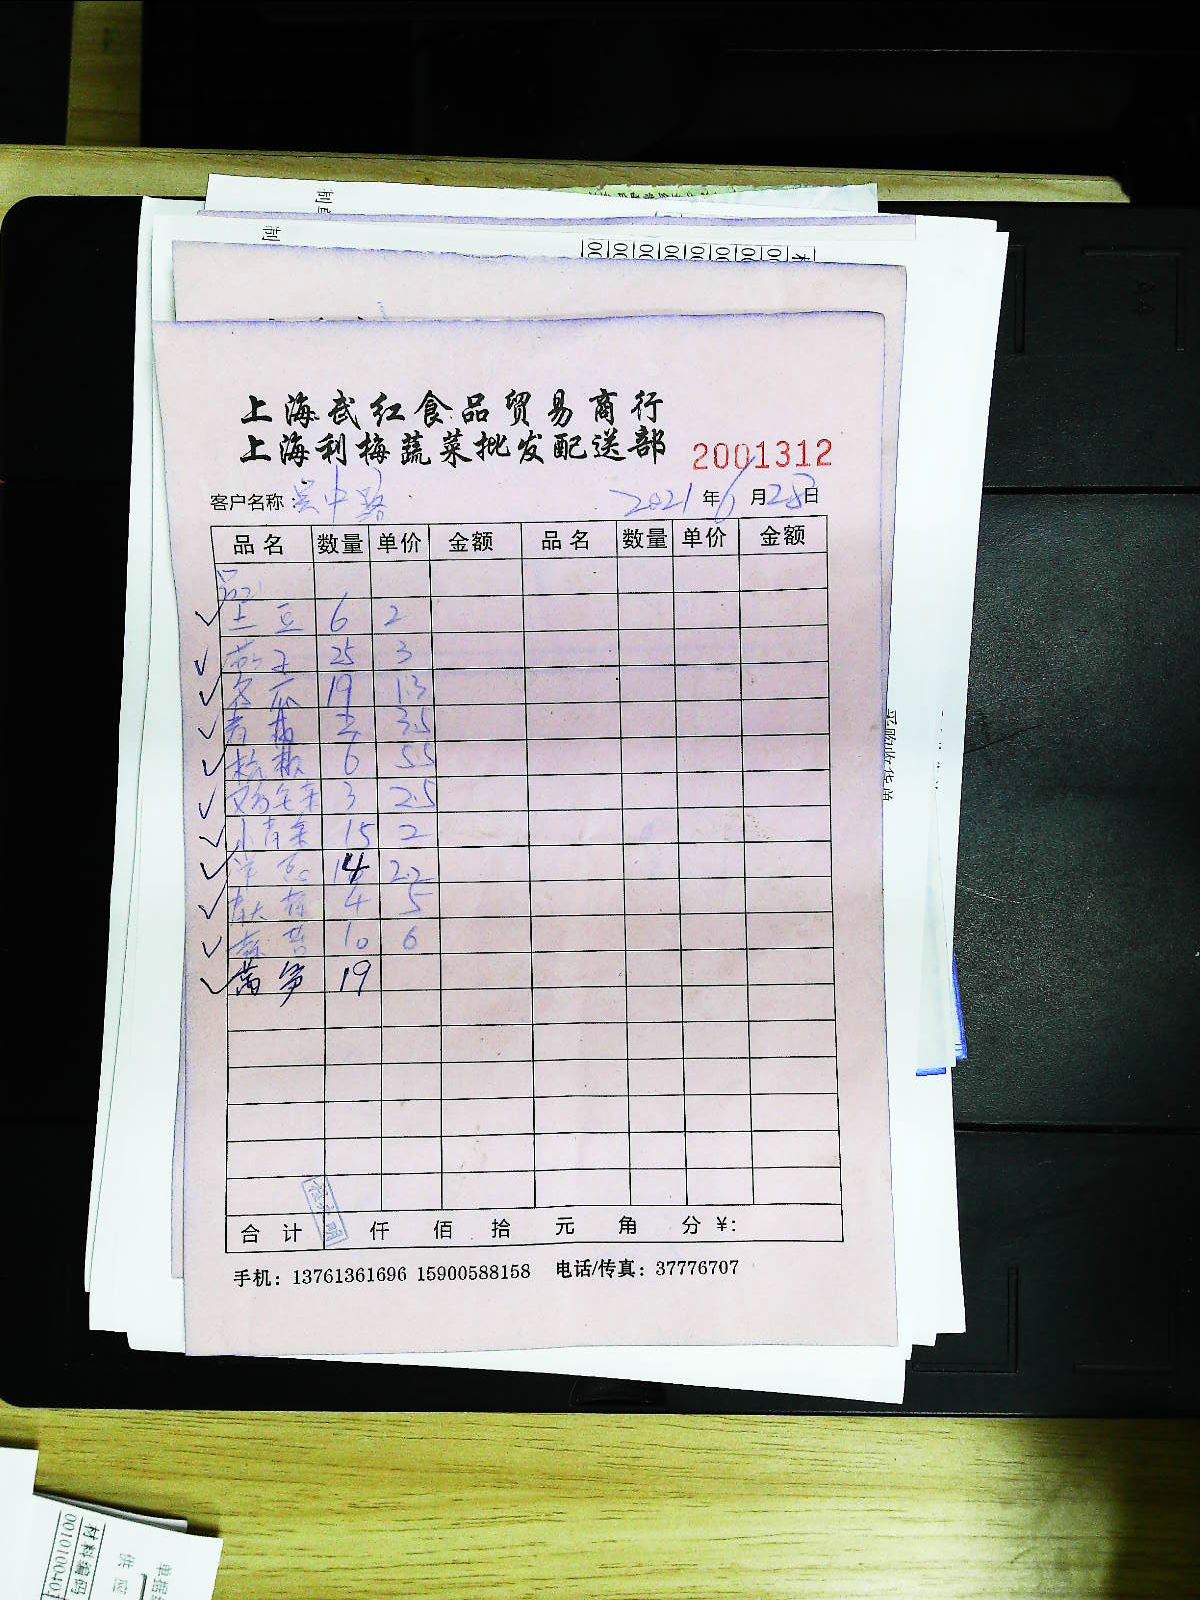 上海武红食品贸易商行
上海利梅蔬菜批发配送部
2001312
客户名称：吴中路 2021年6月28日
品名 数量 单价 金额 品名 数量 单价 金额
土豆 6 2
25 3
冬瓜 19 1.3
青椒 2 3.5
杭椒 6 5.5
3 2.5
小青菜 15 2
洋葱 14 2.2
4 5
10 6
莴笋 19
合计 仟 佰 拾 元 角 分 ¥:
手机：13761361696 15900588158 电话/传真：37776707
采购收货单
材料编码
供应